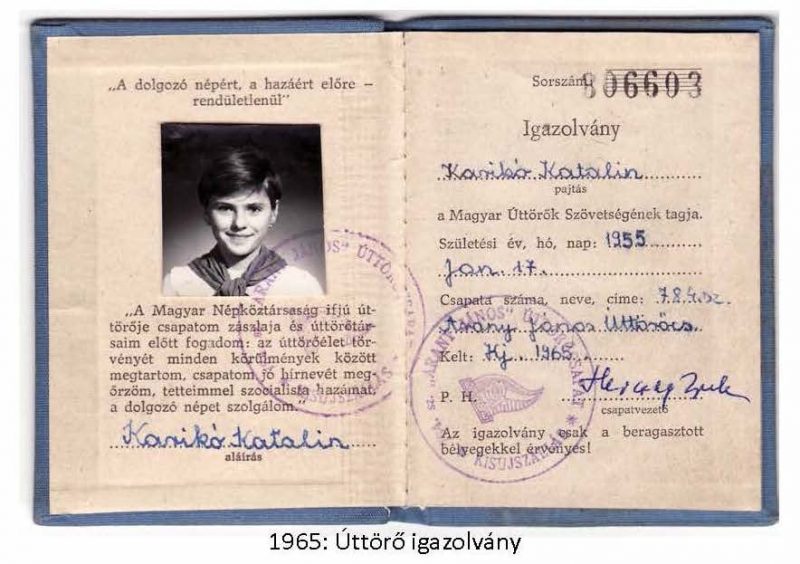 „A dolgozó népért, a hazáért előre –
rendületlenül"
„A Magyar Népköztársaság ifjú út-
törője csapatom zászlaja és úttörőtár-
saim előtt fogadom: az úttörőélet tör-
vényét minden körülmények között
megtartom, csapatom jó hírnevét meg-
őrzöm, tetteimmel szocialista hazámat,
a dolgozó népet szolgálom."
Karikó Katalin
aláírás
Sorszám: 806603
Igazolvány
Karikó Katalin
pajtás
a Magyar Úttörők Szövetségének tagja.
Születési év, hó, nap: 1955
Jan 17.
Csapata száma, neve, címe: 784.sz.
Arany János Úttörőcs
Kelt: Kj 1965
P. H.
csapatvezető
Az igazolvány csak a beragasztott
bélyegekkel érvényes!
„ARANY JÁNOS" ÚTTÖRŐCSAPAT
KISUJSZÁLLÁS
1965: Úttörő igazolvány